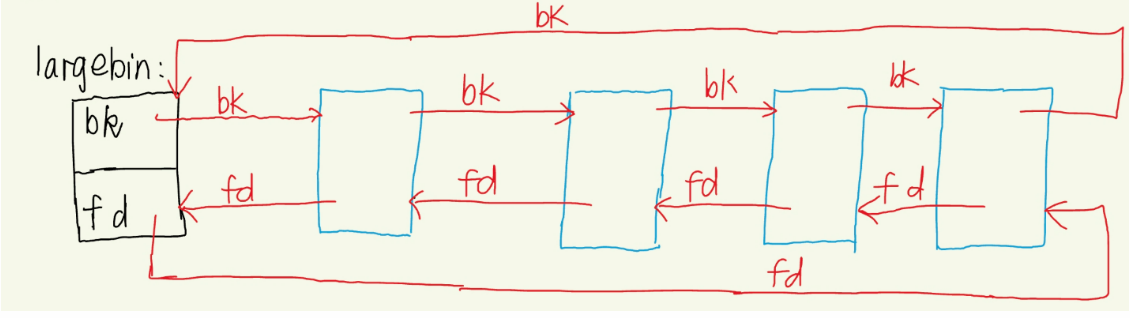 bk
largebin:
bk bk bk bk
bk
fd fd fd fd
fd
fd